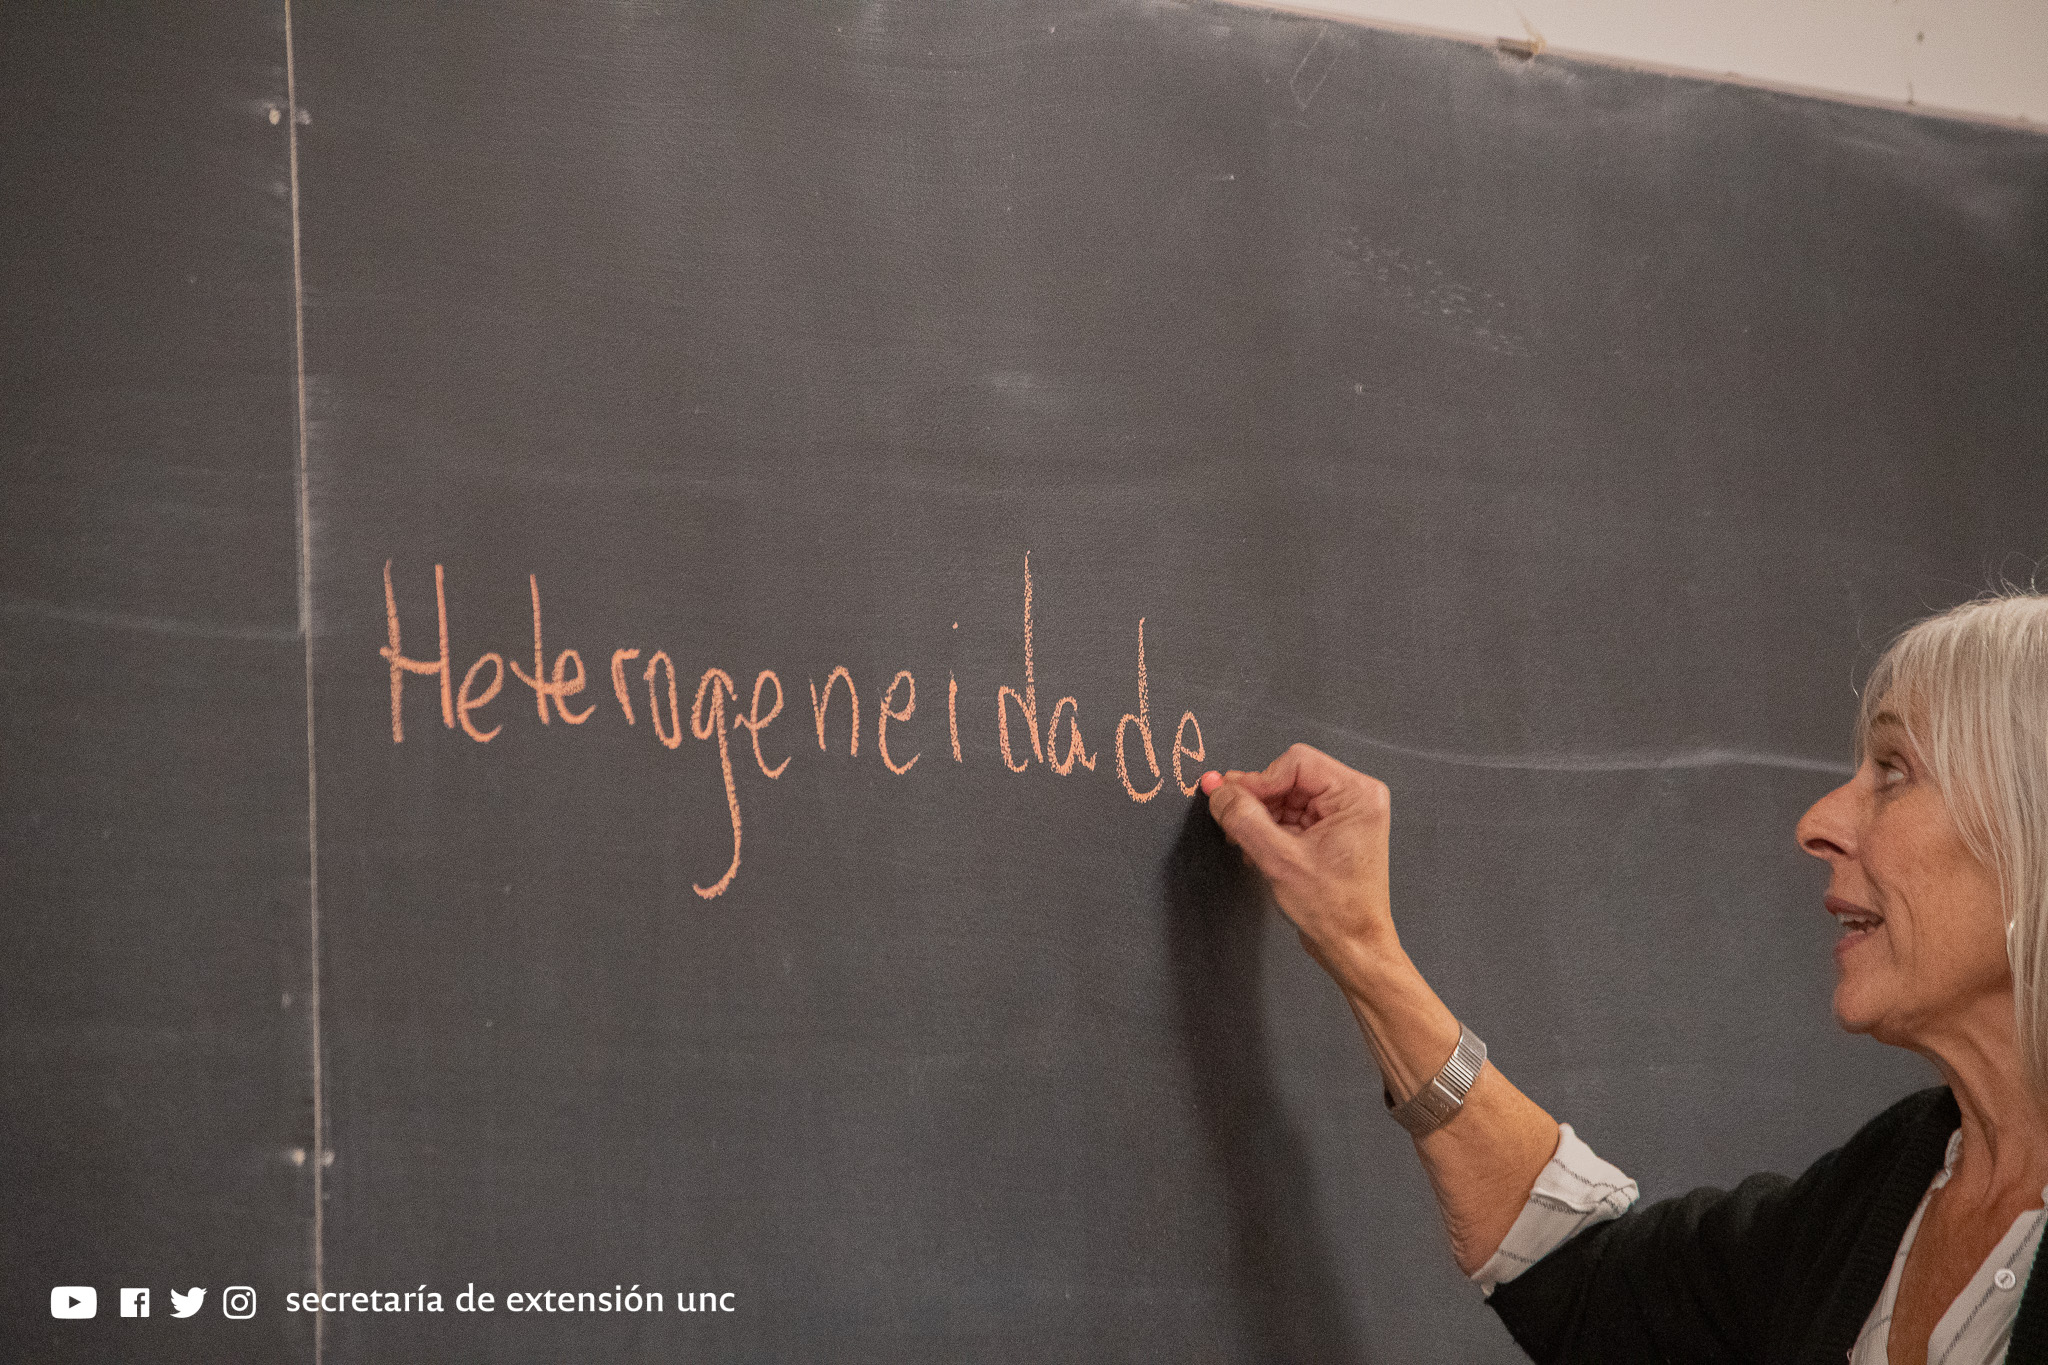 Heterogeneidade
secretaría de extensión unc